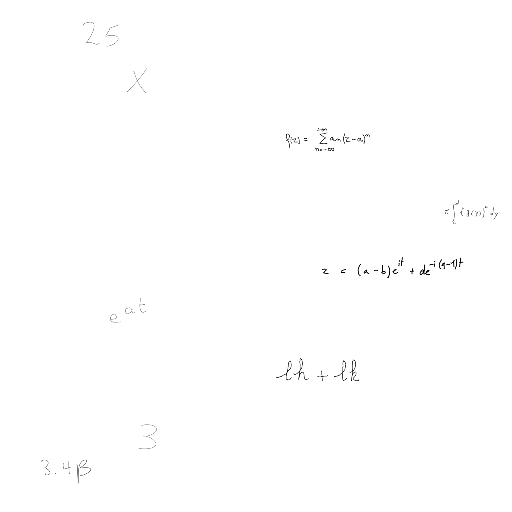 25
X
f(z) = ∑_{n=-∞}^{+∞} a_n(z-a)^n
z = (a-b)e^{it} + de^{-i(q-1)t}
e^{at}
lh + lk
3
3.4β